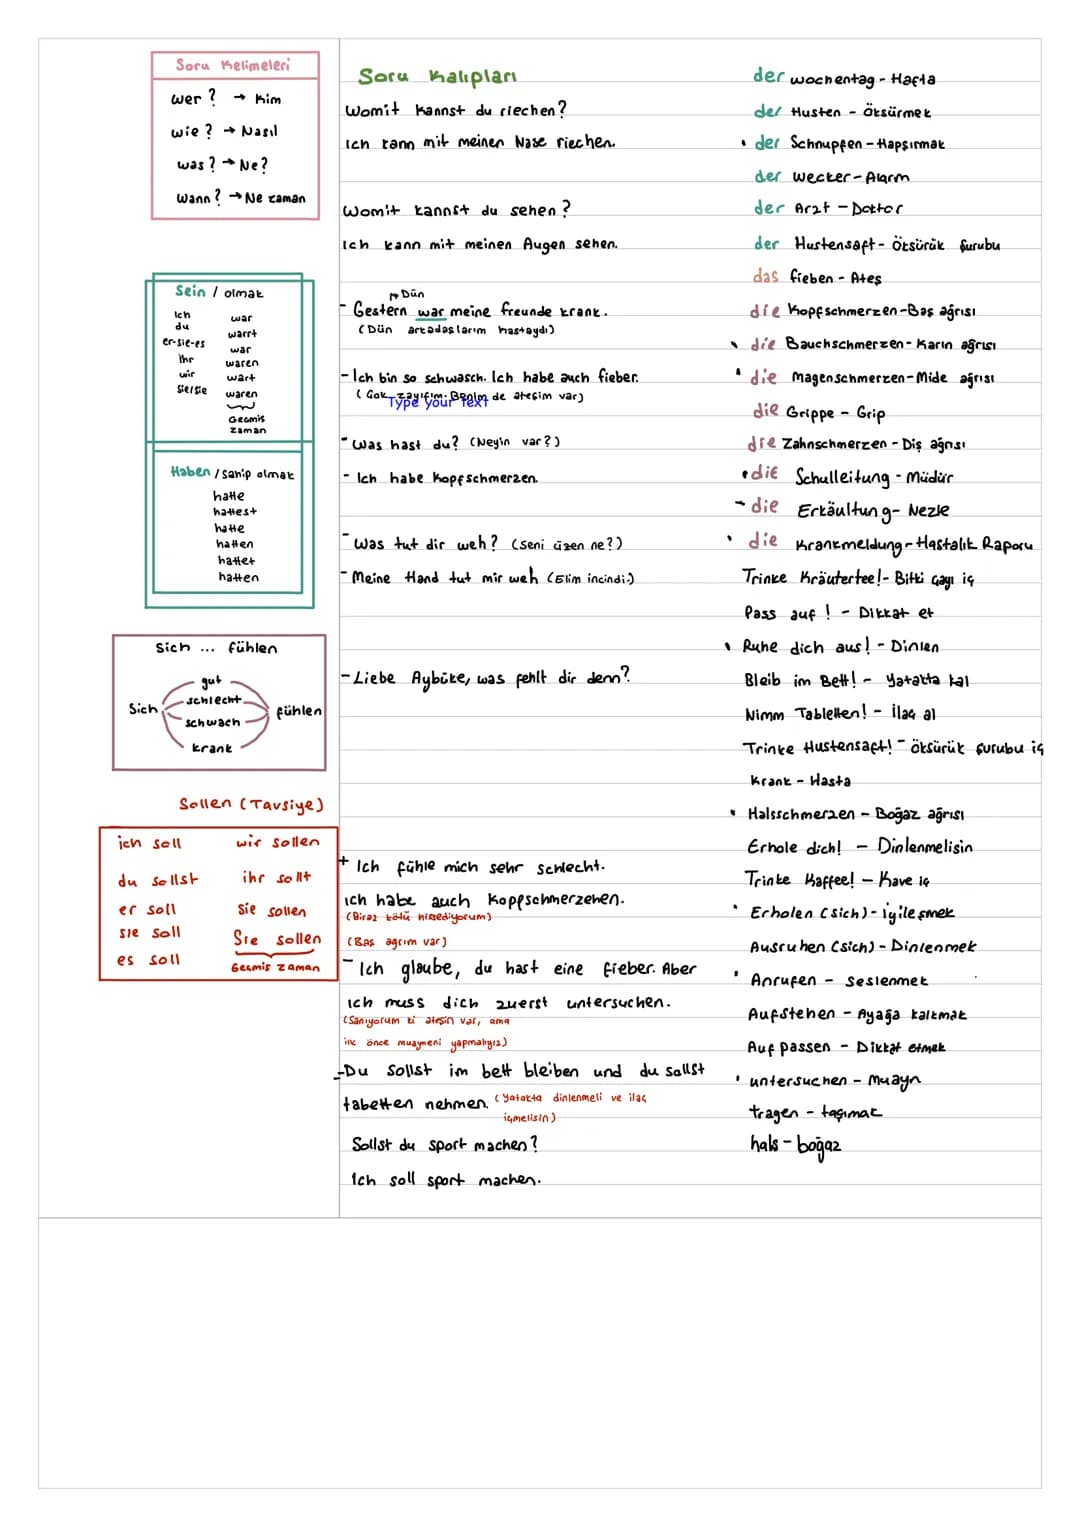 Soru Kelimeleri
wer? → Kim
wie? → Nasıl
was? → Ne?
Wann? → Ne zaman
Sein / olmak
Ich war
du warrt
er-sie-es war
Ihr waren
wir wart
Sie/sie waren
Gecmis
zaman
Haben / sahip olmak
hatte
hattest
hatte
hatten
hattet
hatten
Sich ... fühlen
gut
schlecht
Sich fühlen
schwach
krank
Sollen (Tavsiye)
ich soll wir sollen
du sollst ihr sollt
er soll Sie sollen
sie soll Sie sollen
es soll Gecmis zaman
Soru Kalıpları
Womit kannst du riechen?
Ich kann mit meinen Nase riechen.
Womit kannst du sehen?
Ich kann mit meinen Augen sehen.
→ Dün
- Gestern war meine freunde krank.
(Dün arkadaslarım hastaydı)
- Ich bin so schwasch. Ich habe auch fieber.
(Çok zayıfım. Benim de atesim var)
Type your text
- Was hast du? (Neyin var?)
- Ich habe Kopfschmerzen.
- Was tut dir weh? (Seni üzen ne?)
- Meine Hand tut mir weh (Elim incindi.)
- Liebe Aybüke, was fehlt dir denn?
+ Ich fühle mich sehr schlecht.
Ich habe auch Koppschmerzehen.
(Biraz kötü hissediyorum)
(Bas agrım var)
- Ich glaube, du hast eine fieber. Aber
Ich muss dich zuerst untersuchen.
(Sanıyorum ki atesin var, ama
ilk önce muayneni yapmalıyız)
- Du sollst im bett bleiben und du sollst
tabetten nehmen. (Yatakta dinlenmeli ve ilaç
içmelisin)
Sollst du sport machen?
Ich soll sport machen.
der wochentag - Hafta
der Husten - Öksürmek
• der Schnupfen - Hapşırmak
der Wecker - Alarm
der Arzt - Doktor
der Hustensaft - Öksürük Şurubu
das fieben - Ateş
die Kopfschmerzen - Baş ağrısı
• die Bauchschmerzen - Karın ağrısı
• die Magenschmerzen - Mide ağrısı
die Grippe - Grip
die Zahnschmerzen - Diş ağrısı
• die Schulleitung - Müdür
- die Erkäultung - Nezle
• die Krankmeldung - Hastalık Raporu
Trinke Kräutertee! - Bitki çayı iç
Pass auf! - Dikkat et
• Ruhe dich aus! - Dinlen
Bleib im Bett! - Yatakta kal
Nimm Tabletten! - İlaç al
Trinke Hustensaft! - Öksürük şurubu iç
Krank - Hasta
• Halsschmerzen - Boğaz ağrısı
Erhole dich! - Dinlenmelisin
Trinke Kaffee! - Kave iç
• Erholen (sich) - iyileşmek
Ausruhen (sich) - Dinlenmek
• Anrufen - Seslenmek
Aufstehen - Ayağa kalkmak
Auf passen - Dikkat etmek
• untersuchen - Muayn
tragen - taşımak
hals - boğaz